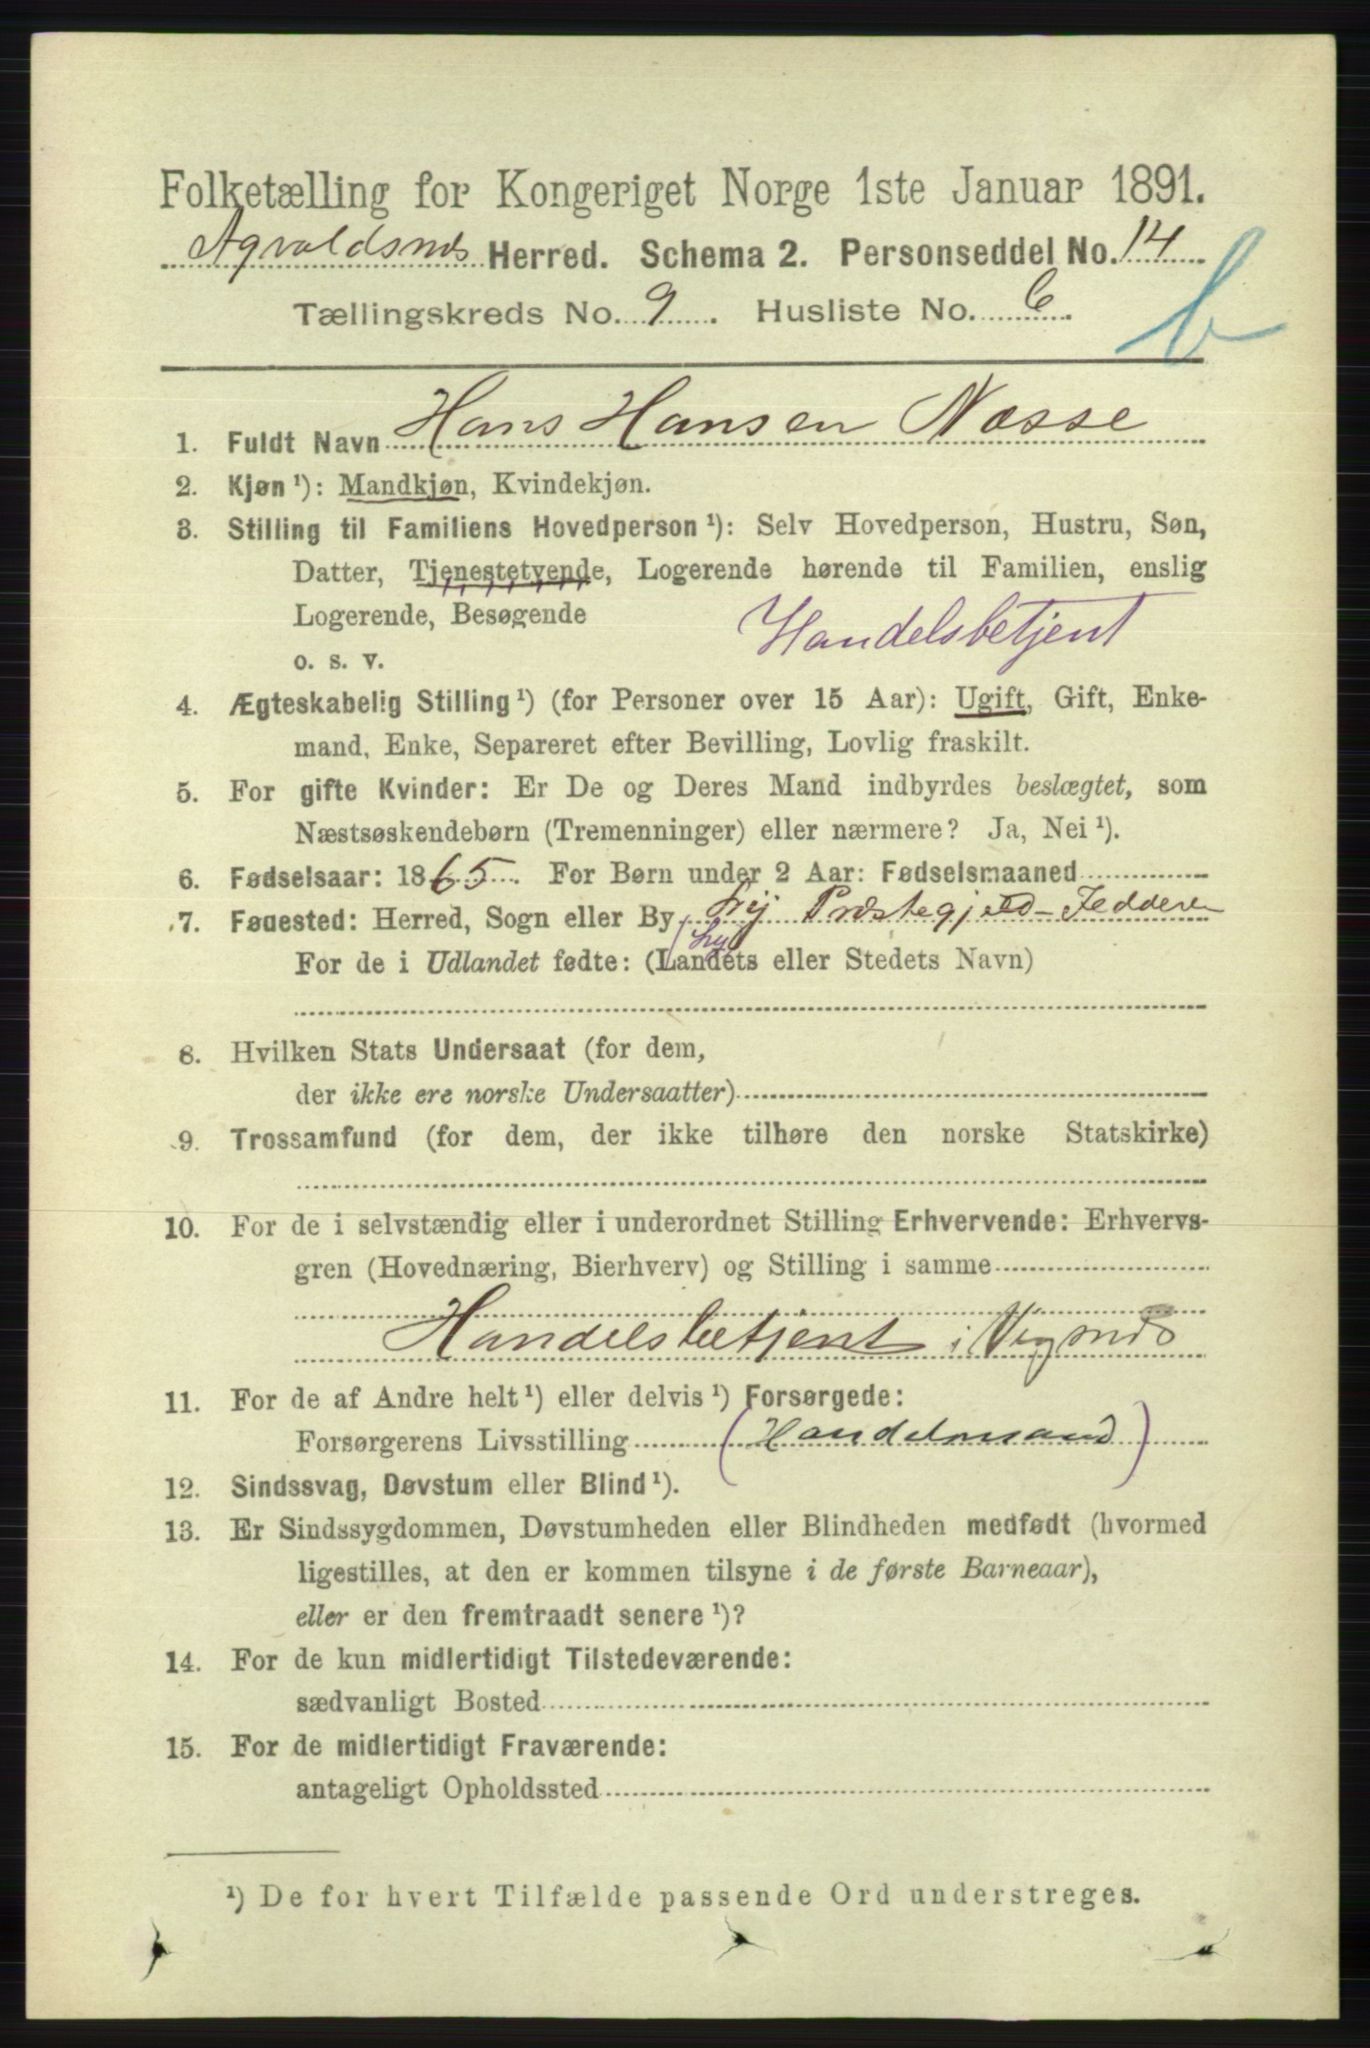 Folketælling for Kongeriget Norge 1ste Januar 1891.
Agvaldsnes Herred. Schema 2. Personseddel No. 14
Tællingskreds No. 9. Husliste No. 6.
b
1. Fuldt Navn Hans Hansen Næsse
2. Kjøn ¹): Mandkjøn, Kvindekjøn.
3. Stilling til Familiens Hovedperson ¹): Selv Hovedperson, Hustru, Søn,
Datter, Tjenestetyende, Logerende hørende til Familien, enslig
Logerende, Besøgende
Handelsbetjent
o. s. v.
4. Ægteskabelig Stilling ¹) (for Personer over 15 Aar): Ugift, Gift, Enke-
mand, Enke, Separeret efter Bevilling, Lovlig fraskilt.
5. For gifte Kvinder: Er De og Deres Mand indbyrdes beslægtet, som
Næstsøskendebørn (Tremenninger) eller nærmere? Ja, Nei ¹).
6. Fødselsaar: 1865. For Børn under 2 Aar: Fødselsmaaned
7. Fødested: Herred, Sogn eller By Præstegjeld - Jedderen
For de i Udlandet fødte: (Landets eller Stedets Navn)
8. Hvilken Stats Undersaat (for dem,
der ikke ere norske Undersaatter)
9. Trossamfund (for dem, der ikke tilhøre den norske Statskirke)
10. For de i selvstændig eller i underordnet Stilling Erhvervende: Erhvervs-
gren (Hovednæring, Bierhverv) og Stilling i samme
Handelsbetjent i Vigsnæs
11. For de af Andre helt ¹) eller delvis ¹) Forsørgede:
Forsørgerens Livsstilling (Handelsmand)
12. Sindssvag, Døvstum eller Blind ¹).
13. Er Sindssygdommen, Døvstumheden eller Blindheden medfødt (hvormed
ligestilles, at den er kommen tilsyne i de første Barneaar),
eller er den fremtraadt senere ¹)?
14. For de kun midlertidigt Tilstedeværende:
sædvanligt Bosted
15. For de midlertidigt Fraværende:
antageligt Opholdssted
¹) De for hvert Tilfælde passende Ord understreges.